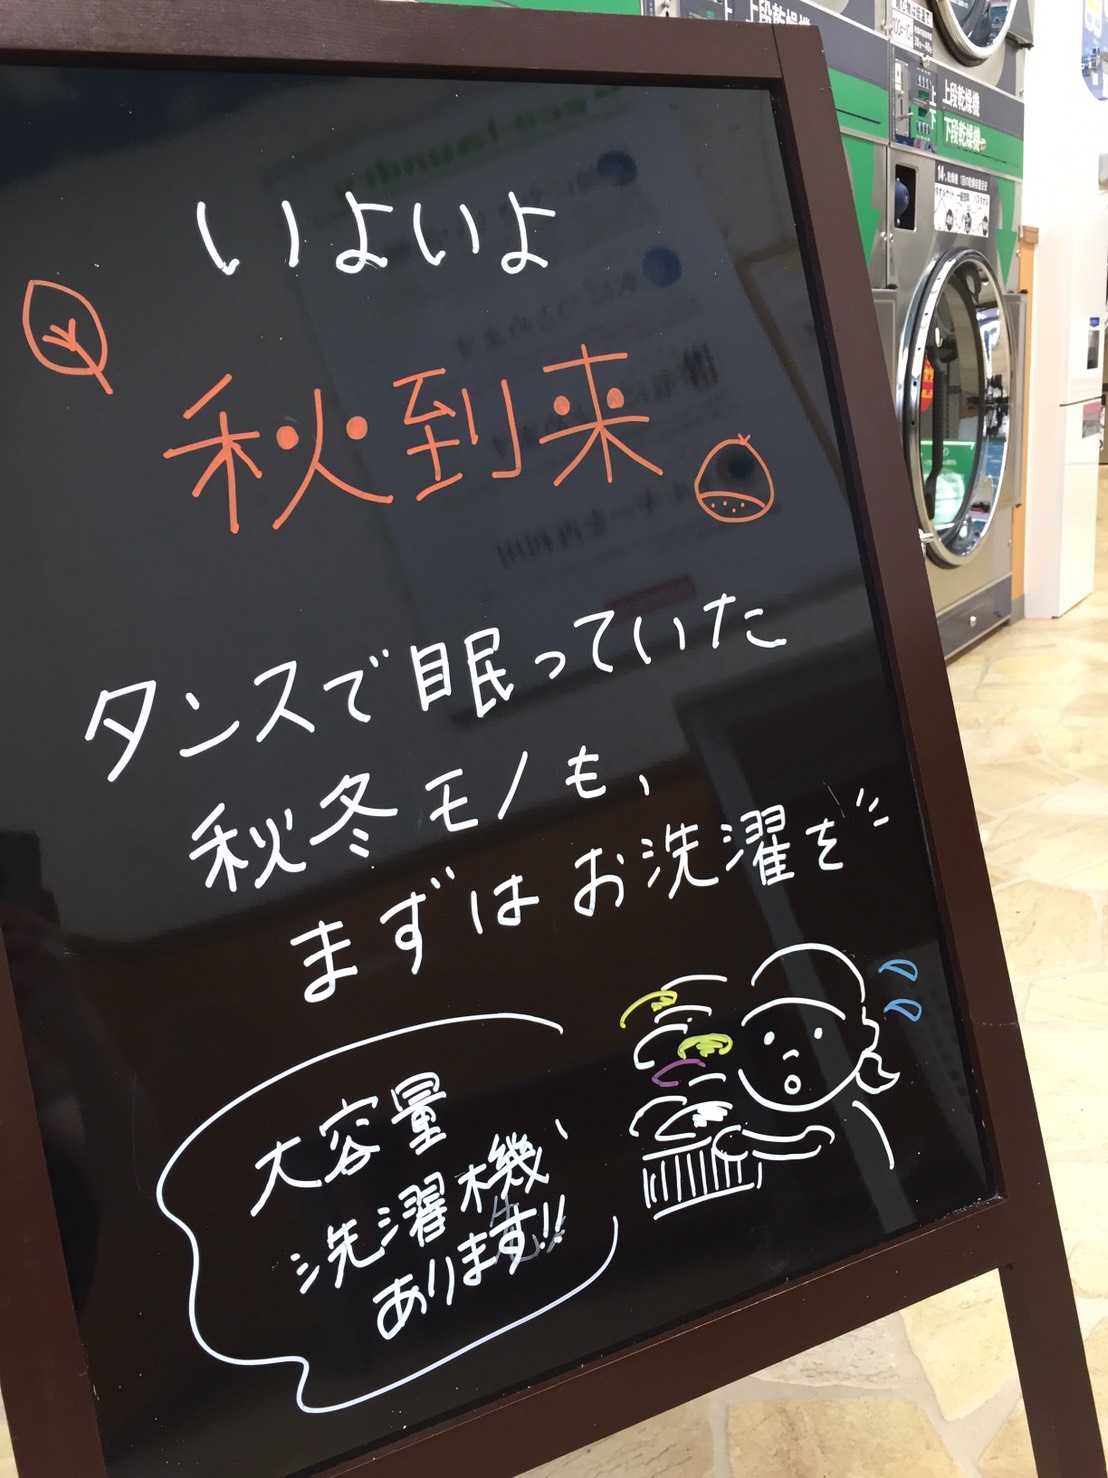 いよいよ
秋到来
タンスで眠っていた
秋冬モノも、
まずはお洗濯を
大容量
洗濯機
あります!!
上段乾燥機
上段乾燥機
下段乾燥機